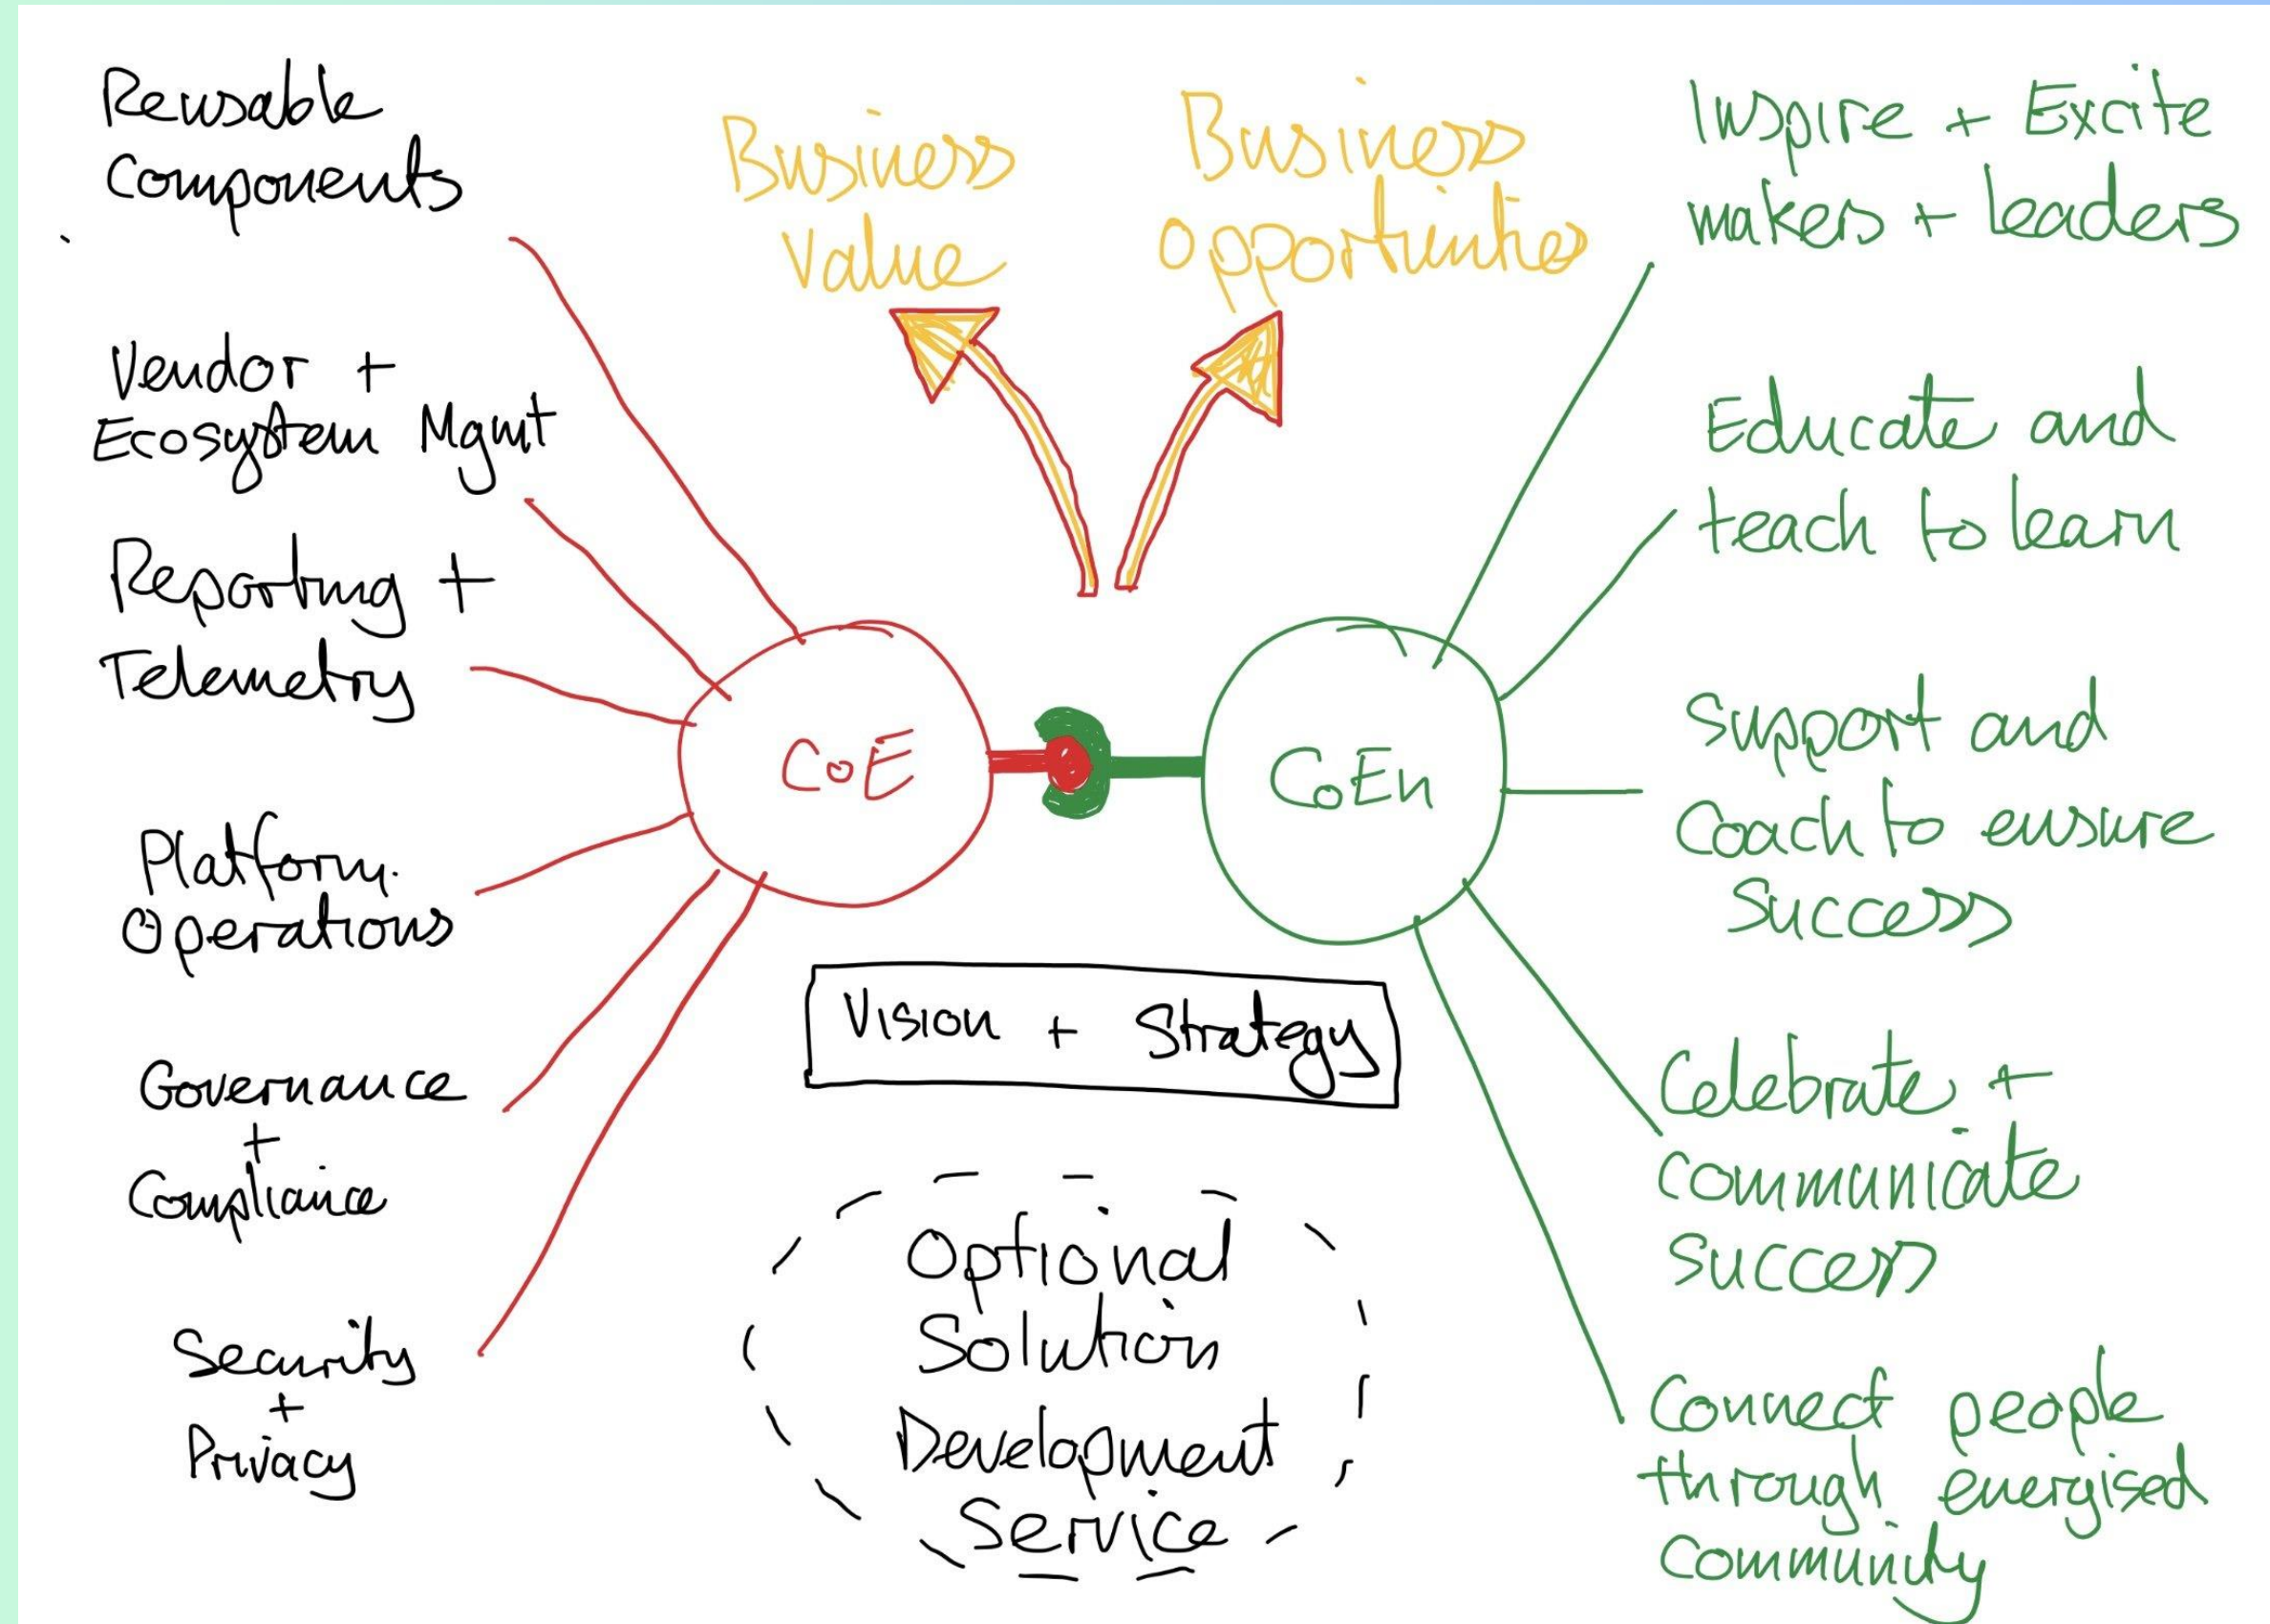 Reusable
Components
Vendor +
Ecosystem Mgmt
Reporting +
Telemetry
Platform
Operations
Governance
+
Compliance
Security
+
Privacy
Business
Value
Business
Opportunities
CoE
CoEn
Vision + Strategy
Optional
Solution
Development
Service
Inspire + Excite
makers + leaders
Educate and
teach to learn
Support and
Coach to ensure
Success
Celebrate +
communicate
success
Connect people
through energised
Community